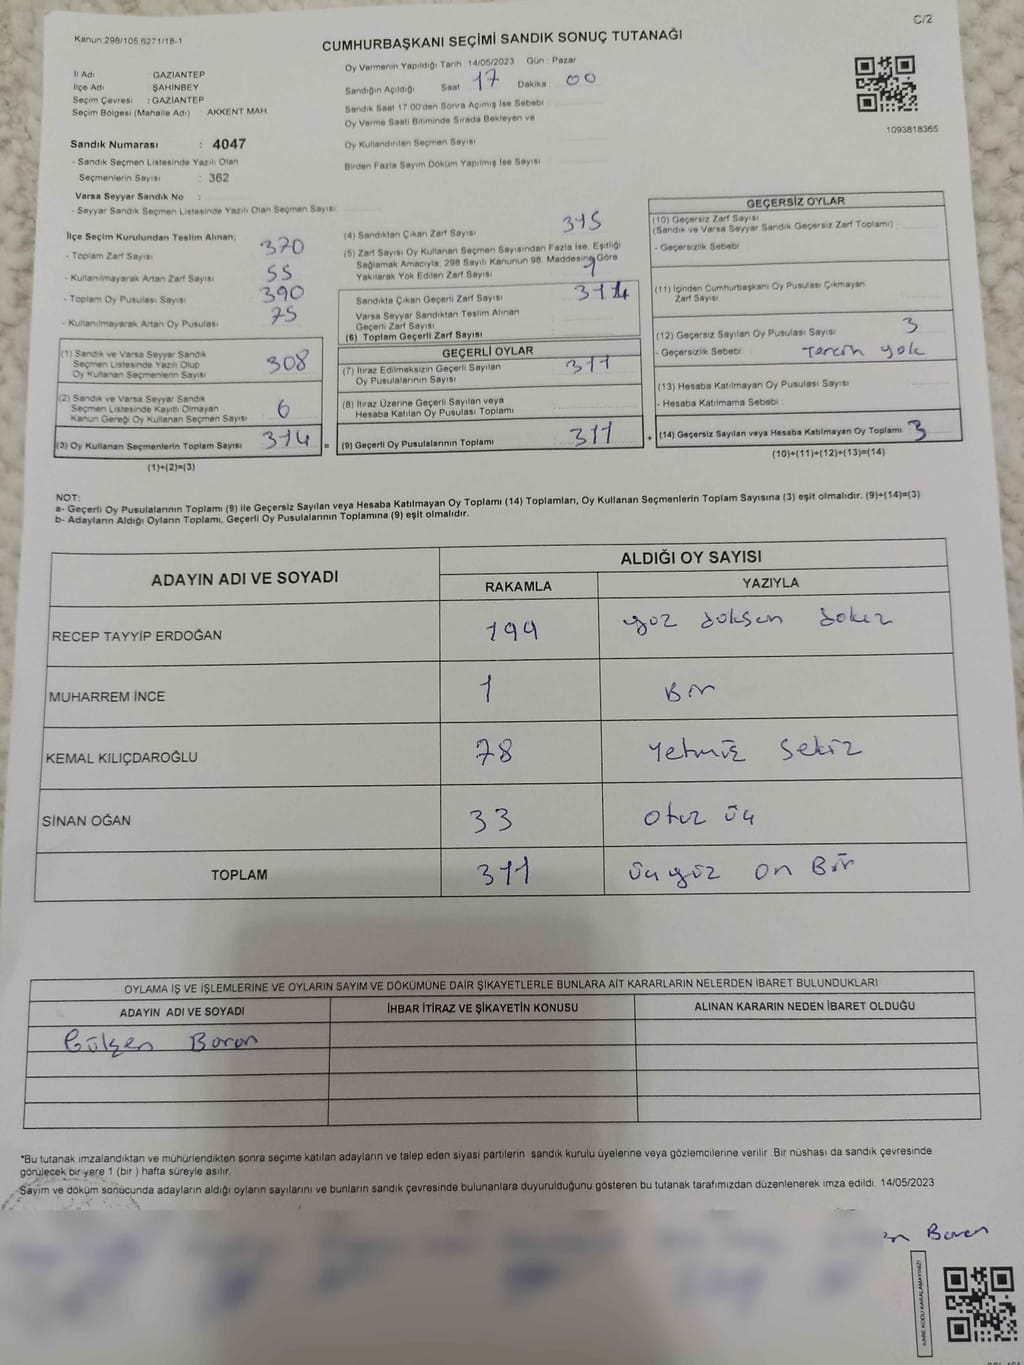 C/2
Kanun:298/105,6271/18-1
CUMHURBAŞKANI SEÇİMİ SANDIK SONUÇ TUTANAĞI
İl Adı GAZİANTEP
İlçe Adı ŞAHİNBEY
Seçim Çevresi : GAZİANTEP
Seçim Bölgesi (Mahalle Adı) AKKENT MAH.
Sandık Numarası : 4047
- Sandık Seçmen Listesinde Yazılı Olan
Seçmenlerin Sayısı : 362
Varsa Seyyar Sandık No :
- Seyyar Sandık Seçmen Listesinde Yazılı Olan Seçmen Sayısı
Oy Vermenin Yapıldığı Tarih 14/05/2023 Gün : Pazar
Sandığın Açıldığı Saat 17 Dakika 00
Sandık Saat 17:00'den Sonra Açımış İse Sebebi
Oy Verme Saati Bitiminde Sırada Bekleyen ve
Oy Kullandırılan Seçmen Sayısı
Birden Fazla Sayım Döküm Yapılmış İse Sayısı
1093818365
İlçe Seçim Kurulundan Teslim Alınan;
- Toplam Zarf Sayısı 370
- Kullanılmayarak Artan Zarf Sayısı 55
- Toplam Oy Pusulası Sayısı 390
- Kullanılmayarak Artan Oy Pusulası 75
(1) Sandık ve Varsa Seyyar Sandık
Seçmen Listesinde Yazılı Olup
Oy Kullanan Seçmenlerin Sayısı 308
(2) Sandık ve Varsa Seyyar Sandık
Seçmen Listesinde Kayıtlı Olmayan
Kanun Gereği Oy Kullanan Seçmen Sayısı 6
(3) Oy Kullanan Seçmenlerin Toplam Sayısı 314 =
(1)+(2)=(3)
(4) Sandıktan Çıkan Zarf Sayısı 315
(5) Zarf Sayısı Oy Kullanan Seçmen Sayısından Fazla İse, Eşitliği
Sağlamak Amacıyla, 298 Sayılı Kanunun 98. Maddesine Göre
Yakılarak Yok Edilen Zarf Sayısı 1
Sandıkta Çıkan Geçerli Zarf Sayısı 314
Varsa Seyyar Sandıktan Teslim Alınan
Geçerli Zarf Sayısı
(6) Toplam Geçerli Zarf Sayısı
GEÇERLİ OYLAR
(7) İtiraz Edilmeksizin Geçerli Sayılan
Oy Pusulalarının Sayısı 311
(8) İtiraz Üzerine Geçerli Sayılan veya
Hesaba Katılan Oy Pusulası Toplamı
(9) Geçerli Oy Pusulalarının Toplamı 311 +
GEÇERSİZ OYLAR
(10) Geçersiz Zarf Sayısı
(Sandık ve Varsa Seyyar Sandık Geçersiz Zarf Toplamı)
- Geçersizlik Sebebi
(11) İçinden Cumhurbaşkanı Oy Pusulası Çıkmayan
Zarf Sayısı
(12) Geçersiz Sayılan Oy Pusulası Sayısı 3
- Geçersizlik Sebebi Tercih yok
(13) Hesaba Katılmayan Oy Pusulası Sayısı
- Hesaba Katılmama Sebebi
(14) Geçersiz Sayılan veya Hesaba Katılmayan Oy Toplamı 3
(10)+(11)+(12)+(13)=(14)
NOT:
a- Geçerli Oy Pusulalarının Toplamı (9) ile Geçersiz Sayılan veya Hesaba Katılmayan Oy Toplamı (14) Toplamları, Oy Kullanan Seçmenlerin Toplam Sayısına (3) eşit olmalıdır. (9)+(14)=(3)
b- Adayların Aldığı Oyların Toplamı, Geçerli Oy Pusulalarının Toplamına (9) eşit olmalıdır.
ADAYIN ADI VE SOYADI ALDIĞI OY SAYISI
RAKAMLA YAZIYLA
RECEP TAYYİP ERDOĞAN 199 yüz doksan dokuz
MUHARREM İNCE 1 Bir
KEMAL KILIÇDAROĞLU 78 Yetmiş Sekiz
SİNAN OĞAN 33 Otuz üç
TOPLAM 311 üçyüz on Bir
OYLAMA İŞ VE İŞLEMLERİNE VE OYLARIN SAYIM VE DÖKÜMÜNE DAİR ŞİKAYETLERLE BUNLARA AİT KARARLARIN NELERDEN İBARET BULUNDUKLARI
ADAYIN ADI VE SOYADI İHBAR İTİRAZ VE ŞİKAYETİN KONUSU ALINAN KARARIN NEDEN İBARET OLDUĞU
Gülşen Boran
*Bu tutanak imzalandıktan ve mühürlendikten sonra seçime katılan adayların ve talep eden siyasi partilerin sandık kurulu üyelerine veya gözlemcilerine verilir .Bir nüshası da sandık çevresinde
görülecek bir yere 1 (bir ) hafta süreyle asılır.
Sayım ve döküm sonucunda adayların aldığı oyların sayılarını ve bunların sandık çevresinde bulunanlara duyurulduğunu gösteren bu tutanak tarafımızdan düzenlenerek imza edildi. 14/05/2023
Boran
KARE KODU KARALAMAYINIZ!